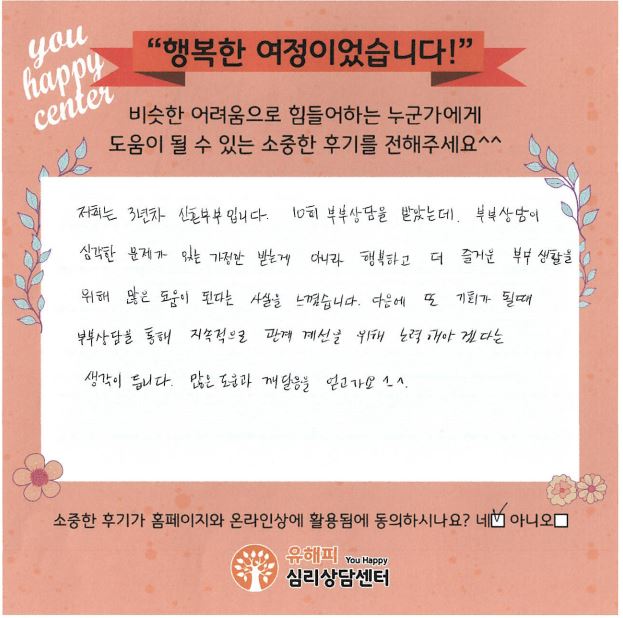 you
happy
center
“행복한 여정이었습니다!”
비슷한 어려움으로 힘들어하는 누군가에게
도움이 될 수 있는 소중한 후기를 전해주세요^^
저희는 3년차 신혼부부입니다. 10회 부부상담을 받았는데, 부부상담이
심각한 문제가 있는 가정만 받는게 아니라 행복하고 더 즐거운 부부 생활을
위해 많은 도움이 된다는 사실을 느꼈습니다. 다음에 또 기회가 될때
부부상담을 통해 지속적으로 관계 계선을 위해 노력해야 겠다는
생각이 듭니다. 많은 도움과 깨달음을 얻고가요 ^.^.
소중한 후기가 홈페이지와 온라인상에 활용됨에 동의하시나요? 네☑ 아니오☐
유해피 You Happy
심리상담센터